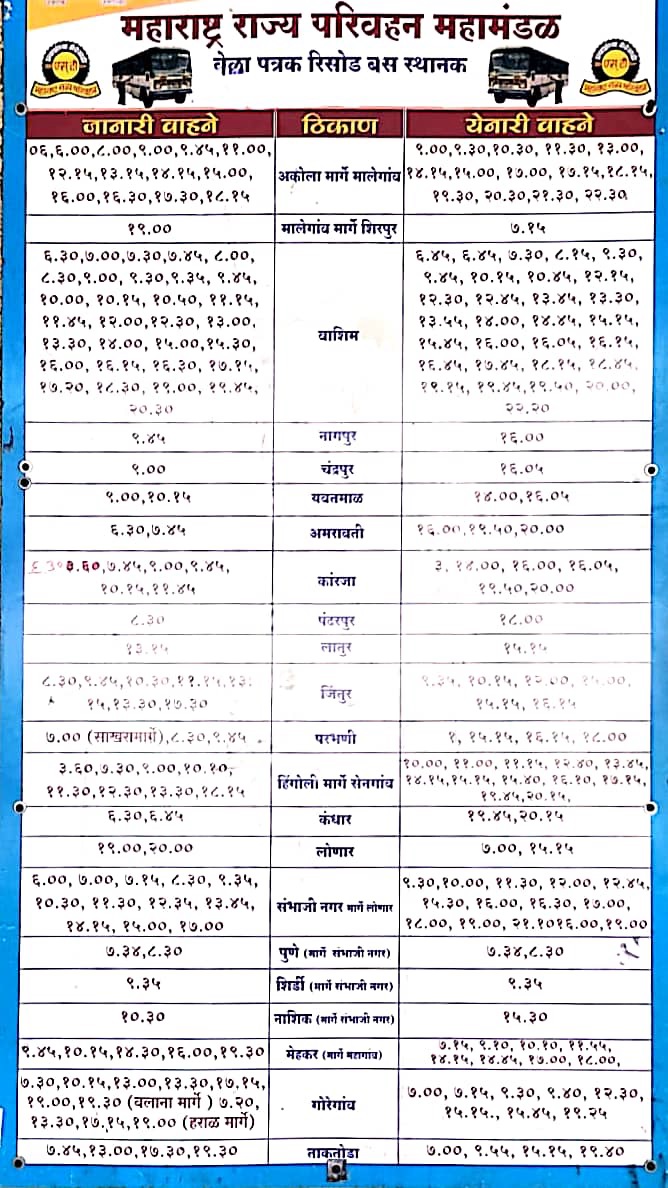 महाराष्ट्र राज्य परिवहन महामंडळ
वेळा पत्रक रिसोड बस स्थानक
जानारी वाहने ठिकाण येनारी वाहने
०६,६.००,८.००,९.००,९.४५,११.००,
१२.१५,१३.१५,१४.१५,१५.००,
१६.००,१६.३०,१७.३०,१८.१५
अकोला मार्गे मालेगांव
९.००,९.३०,१०.३०, ११.३०, १३.००,
१४.१५,१५.००, १७.००, १७.१५,१८.१५,
१९.३०, २०.३०,२१.३०, २२.३०
१९.०० मालेगांव मार्गे शिरपुर ७.१५
६.३०,७.००,७.३०,७.४५, ८.००,
८.३०,९.००, ९.३०,९.३५, ९.४५,
१०.००, १०.१५, १०.५०, ११.१५,
११.४५, १२.००,१२.३०, १३.००,
१३.३०, १४.००, १५.००,१५.३०,
१६.००, १६.१५, १६.३०, १७.१५,
१७.२०, १८.३०, १९.००, १९.४५,
२०.३०
वाशिम
६.४५, ६.४५, ७.३०, ८.१५, ९.३०,
९.४५, १०.१५, १०.४५, १२.१५,
१२.३०, १२.४५, १३.४५, १३.३०,
१३.५५, १४.००, १४.४५, १५.१५,
१५.४५, १६.००, १६.०५, १६.१५,
१६.४५, १७.४५, १८.१५, १८.४५,
१९.१५, १९.४५,१९.५०, २०.००,
२२.२०
९.४५ नागपुर १६.००
९.०० चंद्रपुर १६.०५
९.००,१०.१५ यवतमाळ १४.००,१६.०५
६.३०,७.४५ अमरावती १६.००,१९.५०,२०.००
३.६०,७.४५,९.००,९.४५,
१०.१५,११.४५
कांरजा
३, १४.००, १६.००, १६.०५,
१९.५०,२०.००
८.३० पंढरपुर १८.००
१३.१५ लातुर १५.१५
८.३०,९.४५,१०.३०,११.१५,१३.
१५,१३.३०,१७.३०
जिंतुर
९.३५, १०.१५, १२.००, १५.००,
१५.१५, १६.१५
७.०० (साखरामार्गे),८.३०,९.४५ परभणी १, १५.१५, १६.१५, १८.००
३.६०,७.३०,९.००,१०.१०,
११.३०,१२.३०,१३.३०,१८.१५
हिंगोली मार्गे सेनगांव
१०.००, ११.००, ११.१५, १२.४०, १३.४५,
१४.१५,१५.१५, १५.४०, १६.१०, १७.१५,
१९.४५,२०.१५,
६.३०,६.४५ कंधार १९.४५,२०.१५
१९.००,२०.०० लोणार ७.००, १५.१५
६.००, ७.००, ७.१५, ८.३०, ९.३५,
१०.३०, ११.३०, १२.३५, १३.४५,
१४.१५, १५.००, १७.००
संभाजी नगर मार्गे लोणार
९.३०,१०.००, ११.३०, १२.००, १२.४५,
१५.३०, १६.००, १६.३०, १७.००,
१८.००, १९.००, २१.१०१६.००,१९.००
७.३४,८.३० पुणे (मार्गे संभाजी नगर) ७.३४,८.३०
९.३५ शिर्डी (मार्गे संभाजी नगर) ९.३५
१०.३० नाशिक (मार्गे संभाजी नगर) १५.३०
९.४५,१०.१५,१४.३०,१६.००,१९.३० मेहकर (मार्गे वडगांव)
७.१५, ९.१०, १०.१०, ११.५५,
१४.१५, १४.४५, १७.००, १८.००,
७.३०,१०.१५,१३.००,१३.३०,१७.१५,
१९.००,१९.३० (वलाना मार्गे ) ७.२०,
१३.३०,१७.१५,१९.०० (हराळ मार्गे)
गोरेगांव
७.००, ७.१५, ९.३०, ९.४०, १२.३०,
१५.१५., १५.४५, १९.२५
७.४५,१३.००,१७.३०,१९.३० ताकतोडा ७.००, ९.५५, १५.१५, १९.४०